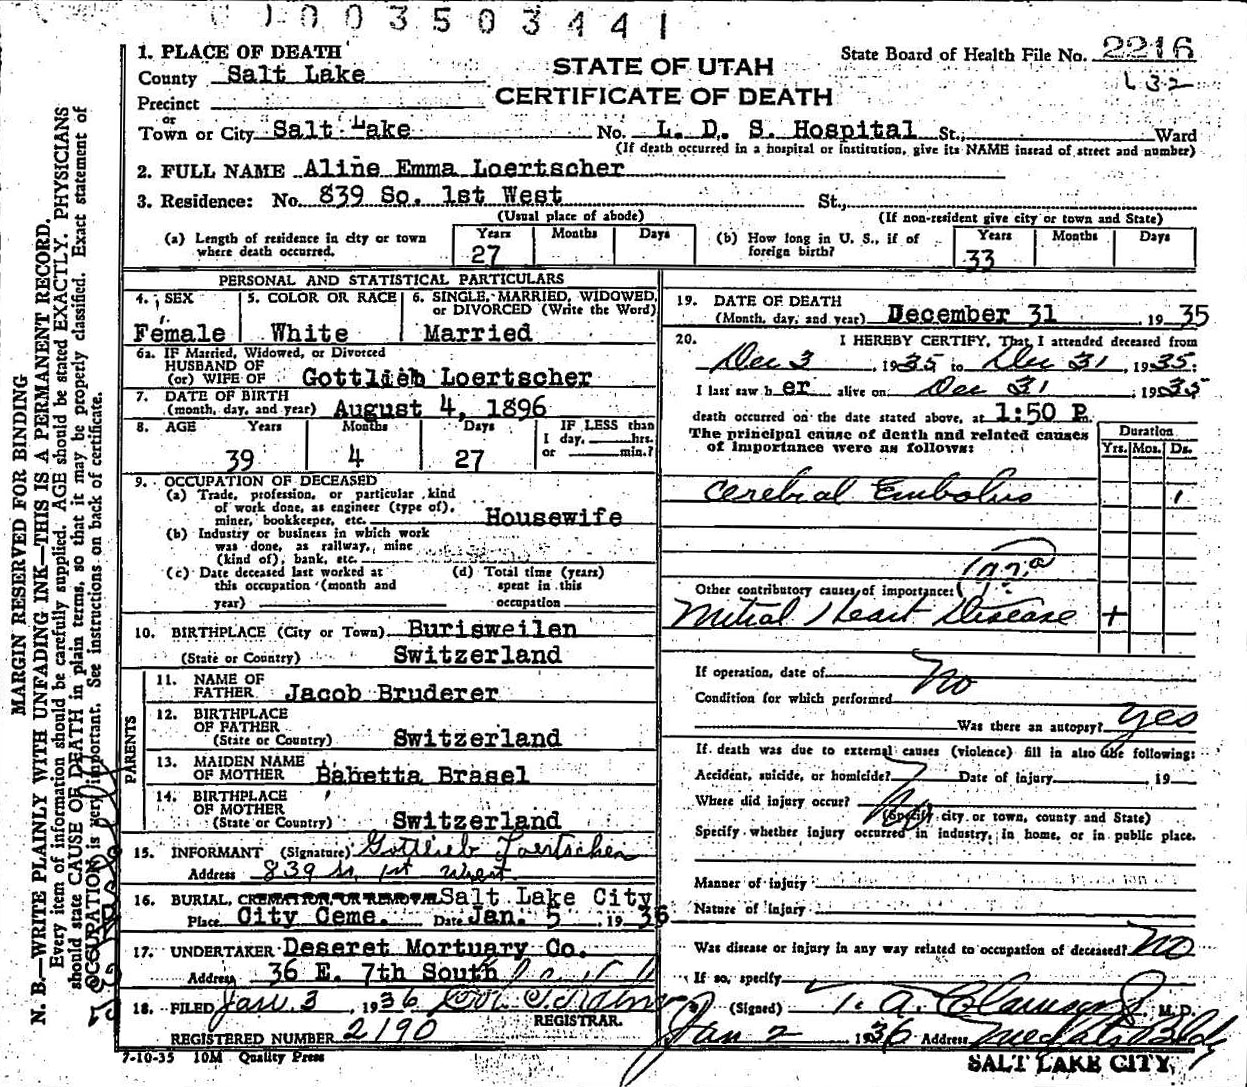 003503441
1. PLACE OF DEATH
County Salt Lake
Precinct
or
Town or City Salt Lake No. L. D. S. Hospital St., Ward
(If death occurred in a hospital or institution, give its NAME instead of street and number)
STATE OF UTAH
CERTIFICATE OF DEATH
State Board of Health File No. 2216
132
2. FULL NAME Aline Emma Loertscher
3. Residence: No. 839 So. 1st West St.,
(Usual place of abode) (If non-resident give city or town and State)
(a) Length of residence in city or town where death occurred. Years 27 Months Days
(b) How long in U. S., if of foreign birth? Years 33 Months Days
PERSONAL AND STATISTICAL PARTICULARS
4. SEX Female
5. COLOR OR RACE White
6. SINGLE, MARRIED, WIDOWED, or DIVORCED (Write the Word) Married
6a. IF Married, Widowed, or Divorced
HUSBAND OF
(or) WIFE OF Gottlieb Loertscher
7. DATE OF BIRTH
(month, day, and year) August 4, 1896
8. AGE Years 39 Months 4 Days 27 IF LESS than 1 day, hrs. or min.?
9. OCCUPATION OF DECEASED
(a) Trade, profession, or particular kind
of work done, as engineer (type of),
miner, bookkeeper, etc. Housewife
(b) Industry or business in which work
was done, as railway, mine
(kind of), bank, etc.
(c) Date deceased last worked at
this occupation (month and
year)
(d) Total time (years)
spent in this
occupation
10. BIRTHPLACE (City or Town) Burisweilen
(State or Country) Switzerland
PARENTS
11. NAME OF
FATHER Jacob Bruderer
12. BIRTHPLACE
OF FATHER
(State or Country) Switzerland
13. MAIDEN NAME
OF MOTHER Babetta Brasel
14. BIRTHPLACE
OF MOTHER
(State or Country) Switzerland
15. INFORMANT (Signature) Gottlieb Loertscher
Address 839 So 1st West
16. BURIAL, CREMATION, OR REMOVAL Salt Lake City
Place City Ceme. Date Jan. 5 1936
17. UNDERTAKER Deseret Mortuary Co.
Address 36 E. 7th South
18. FILED Jan. 3, 1936
REGISTRAR.
REGISTERED NUMBER 2190
7-10-35 10M Quality Press
19. DATE OF DEATH
(Month, day, and year) December 31, 1935
20. I HEREBY CERTIFY, That I attended deceased from
Dec 3, 1935 to Dec 31, 1935:
I last saw her alive on Dec 31 1935
death occurred on the date stated above, at 1:50 P.m.
The principal cause of death and related causes
of importance were as follows:
Duration
Yrs. Mos. Ds.
Cerebral Embolus 1
92a
Other contributory causes of importance:
Mitral Heart Disease +
If operation, date of No
Condition for which performed
Was there an autopsy? Yes
If death was due to external causes (violence) fill in also the following:
Accident, suicide, or homicide? Date of injury 19
Where did injury occur? No
(Specify city or town, county and State)
Specify whether injury occurred in industry, in home, or in public place.
Manner of injury
Nature of injury
Was disease or injury in any way related to occupation of deceased? No
If so, specify
(Signed) M.D.
Jan 2 1936 Address
SALT LAKE CITY
MARGIN RESERVED FOR BINDING
N. B.—WRITE PLAINLY WITH UNFADING INK—THIS IS A PERMANENT RECORD.
Every item of information should be carefully supplied. AGE should be stated EXACTLY. PHYSICIANS
should state CAUSE OF DEATH in plain terms, so that it may be properly classified. Exact statement of
OCCUPATION is very important. See instructions on back of certificate.